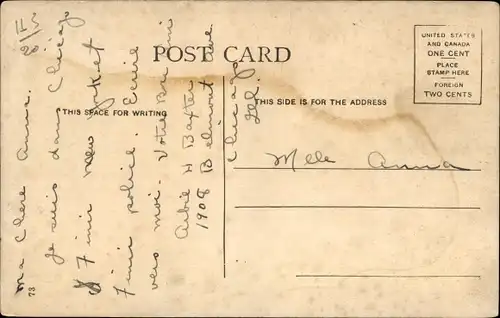 POST CARD
THIS SPACE FOR WRITING
THIS SIDE IS FOR THE ADDRESS
UNITED STATES
AND CANADA
ONE CENT
PLACE
STAMP HERE
FOREIGN
TWO CENTS
Ma Chere Anna.
Je suis dans Chicago
7 imi New
7 imi police. Ecrie
vers moi. Votre Bon ami
Arbie H Baxter
1908 Belmont Ave
Chicago
Ill.
Mlle Anna
73